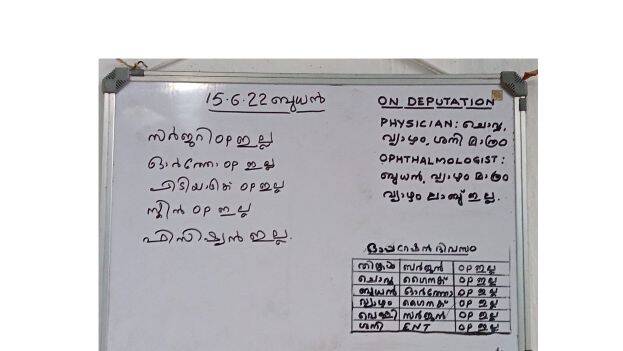 15.6.22 ബുധൻ
സർജറി OP ഇല്ല
ഓർത്തോ OP ഇല്ല
പീഡിയാട്രിക് OP ഇല്ല
സ്കിൻ OP ഇല്ല
ഫിസിഷ്യൻ ഇല്ല.
ON DEPUTATION
PHYSICIAN: ചൊവ്വ,
വ്യാഴം, ശനി മാത്രം
OPHTHALMOLOGIST:
ബുധൻ, വ്യാഴം മാത്രം
വ്യാഴം ലാബ് ഇല്ല.
ഓപ്പറേഷൻ ദിവസം
തിങ്കൾ സർജൻ OP ഇല്ല
ചൊവ്വ ഗൈനക് OP ഇല്ല
ബുധൻ ഓർത്തോ OP ഇല്ല
വ്യാഴം ഗൈനക് OP ഇല്ല
വെള്ളി സർജൻ OP ഇല്ല
ശനി ENT OP ഇല്ല